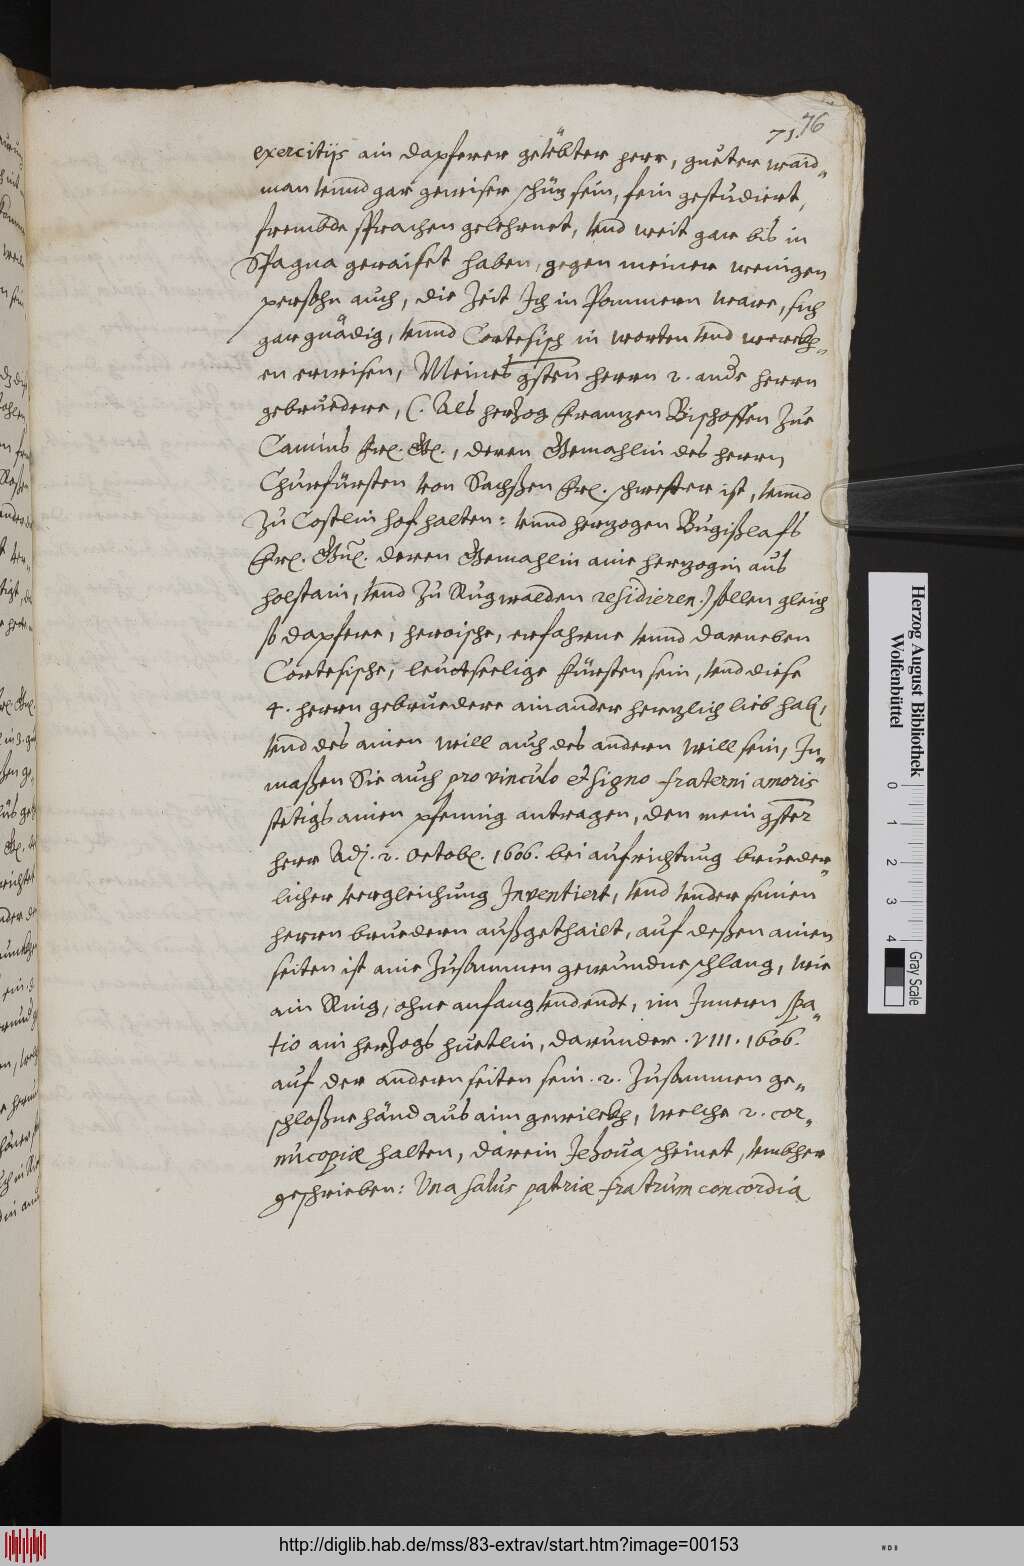 71. 76
exercitijs ain dapferer geüebter herr, gueter waid„
man vnnd gar gewiser schüz sein, fein gestudiert,
frembde sprachen gelehrnet, vnd weit gar bis in
Spagna geraiset haben, gegen meiner wenigen
persohn auch, die Zeit Ich in Pommern ware, sich
gar gnädig, vnnd Cortesisch in worten vnd werckh„
en erwisen, Meines gsten herrn 2. ande herrn
gebruedere, (. Als herzog Frantzen Bischoffen Zue
Camins Frl. Gl., deren Gemahlin des herrn
Churfürsten von Sachßen Frl. schwester ist, vnnd
Zu Coslin hof halten: vnnd herzogen Bugißlafs
Frl. Gnl. deren Gemahlin aine herzogin aus
holstain, vnd Zu Rugwalden residieren.) sollen gleich
so dapfere, heroische, erfahrne vnnd darneben
Cortesische, leutseelige Fürsten sein, vnd diese
4. herrn gebruedere ainander herzlich lieb hab,
vnd des ainen will auch des andern will sein, In„
maßen Sie auch pro vinculo et signo fraterni amoris
stetigs ainen pfennig antragen, den mein gster
herr Adj. 2. Octobr. 1606. bei aufrichtung brueder„
licher vergleichung Inventiert, vnd vnder seinen
herrn bruedern außgethailt, auf deßen ainen
seiten ist aine Zusammen gewundne schlang, wie
ain Ring, ohne anfang vnd endt, im Innern spa„
tio ain herzogs huetlin, darunder . VIII . 1606.
auf der andern seiten sein . 2. Zusammen ge„
schloßne händ aus aim gewilckh, welche 2. cor„
nucopiæ halten, darein Jehoua scheinet, vmbher
geschrieben: Vna salus patriæ fratrum concordia
Herzog August Bibliothek
Wolfenbüttel
0 1 2 3 4
Gray Scale
http://diglib.hab.de/mss/83-extrav/start.htm?image=00153